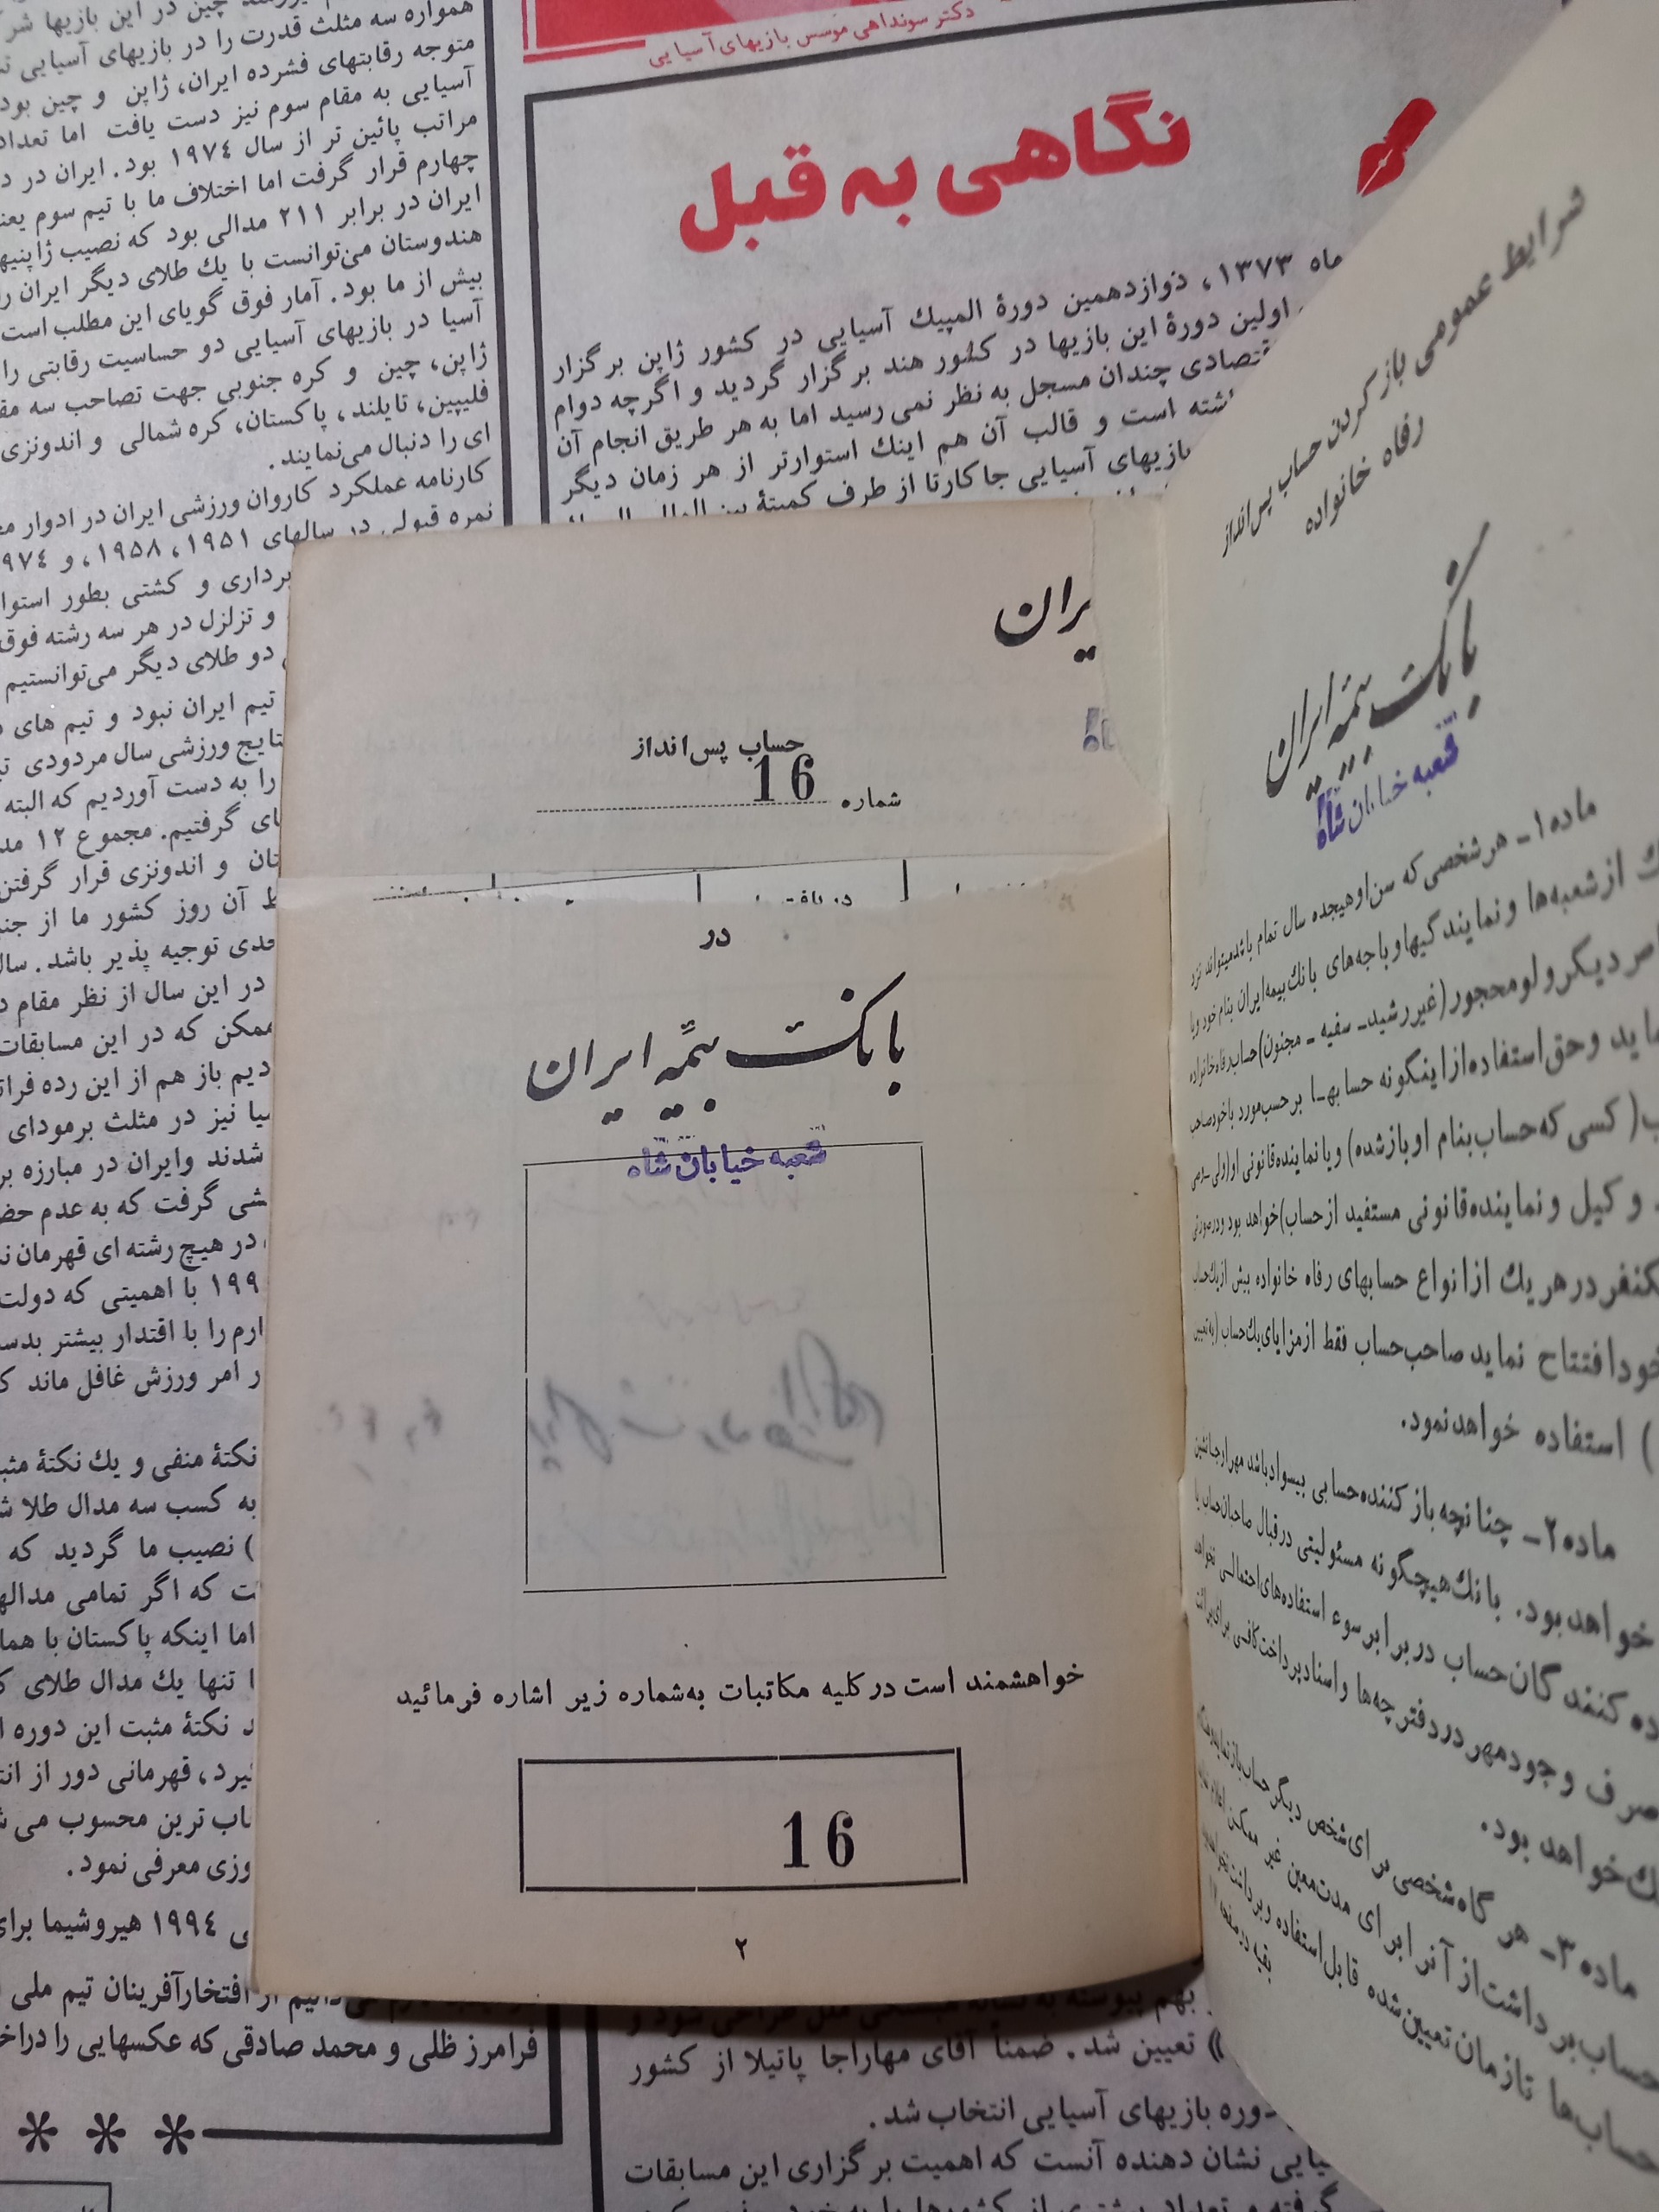 دکتر سونداهی موسس بازیهای آسیایی
نگاهی به قبل
ماه ۱۳۷۳، دوازدهمین دورهٔ المپیك آسیایی در کشور ژاپن برگزار
اولین دورهٔ این بازیها در کشور هند برگزار گردید و اگرچه دوام
چندان مسجل به نظر نمی رسید اما به هر طریق انجام آن
است و قالب آن هم اینك استوارتر از هر زمان دیگر
بازیهای آسیایی جاکارتا از طرف کمیتهٔ
همواره سه مثلث قدرت را در بازیهای آسیایی
متوجه رقابتهای فشرده ایران، ژاپن و چین بود
آسیایی به مقام سوم نیز دست یافت اما تعداد
مراتب پائین تر از سال ۱۹۷٤ بود. ایران در
چهارم قرار گرفت اما اختلاف ما با تیم سوم
ایران در برابر ۲۱۱ مدالی بود که نصیب
هندوستان می‌توانست با یك طلای دیگر ایران
بیش از ما بود. آمار فوق گویای این مطلب است
آسیا در بازیهای آسیایی دو حساسیت رقابتی را
ژاپن، چین و کره جنوبی جهت تصاحب سه
فلیپین، تایلند، پاکستان، کره شمالی و اندونزی
ای را دنبال می‌نمایند.
کارنامه عملکرد کاروان ورزشی ایران در ادوار
نمره قبولی در سالهای ۱۹۵۱، ۱۹۵۸، و
و کشتی بطور
و تزلزل در هر سه رشته فوق
دو طلای دیگر می‌توانستیم
تیم ایران نبود و تیم های
ورزشی سال مردودی
را به دست آوردیم که البته
گرفتیم. مجموع ۱۲
و اندونزی قرار گرفتن
آن روز کشور ما از
توجیه پذیر باشد. سال
در این سال از نظر مقام
ممکن که در این مسابقات
باز هم از این رده
نیز در مثلث برمودای
شدند و ایران در مبارزه
گرفت که به عدم
در هیچ رشته ای قهرمان
با اهمیتی که دولت
را با اقتدار بیشتر
امر ورزش غافل ماند
نکتهٔ منفی و یك نکتهٔ
به کسب سه مدال طلا
) نصیب ما گردید که
که اگر تمامی
اما اینکه پاکستان با
تنها یك مدال طلای
نکتهٔ مثبت این دوره
قهرمانی دور از
ترین محسوب می
معرفی نمود.
۱۹۹٤ هیروشیما
افتخارآفرینان تیم ملی
فرامرز ظلی و محمد صادقی که عکسهایی را
یران
حساب پس‌انداز
شماره 16
در
بانک بیمه ایران
شعبه خیابان شاه
خواهشمند است در کلیه مکاتبات به‌شماره زیر اشاره فرمائید
16
۲
شرایط عمومی باز کردن حساب پس‌انداز
رفاه خانواده
بانک بیمه ایران
شعبه خیابان شاه
ماده ۱ـ هر شخصی که سن او هیجده سال تمام باشد میتواند نزد
از شعبه‌ها و نمایندگیها و باجه‌های بانك بیمه ایران بنام خود و یا
دیگر ولو محجور (غیر رشید ـ سفیه ـ مجنون) حساب رفاه خانواده
و حق استفاده از اینگونه حسابها بر حسب مورد با خود صاحب
(کسی که حساب بنام او باز شده) و یا نماینده قانونی او (ولی ـ وصی
و کیل و نماینده قانونی مستفید از حساب) خواهد بود و در صورتی
در هر یك از انواع حسابهای رفاه خانواده بیش از یك حساب
افتتاح نماید صاحب حساب فقط از مزایای یك حساب
) استفاده خواهد نمود.
ماده ۲ـ چنانچه باز کننده حسابی بیسواد باشد مهر او جانشین
خواهد بود. بانك هیچگونه مسئولیتی در قبال صاحبان حساب یا
کنندگان حساب در برابر سوء استفاده‌های احتمالی نخواهد
صرف وجود مهر در دفترچه‌ها و اسناد پرداخت کافی برای برائت
خواهد بود.
ماده ۳ـ هر گاه شخصی برای شخص دیگر حساب باز نماید
حساب برداشت از آنرا برای مدت معین غیر ممکن اعلام
حساب‌ها تا زمان تعیین شده قابل استفاده و برداشت
بقیه در صفحه
تعیین شد. ضمناً آقای مهاراجا پاتیلا از کشور
دوره بازیهای آسیایی انتخاب شد.
نشان دهنده آنست که اهمیت برگزاری این مسابقات